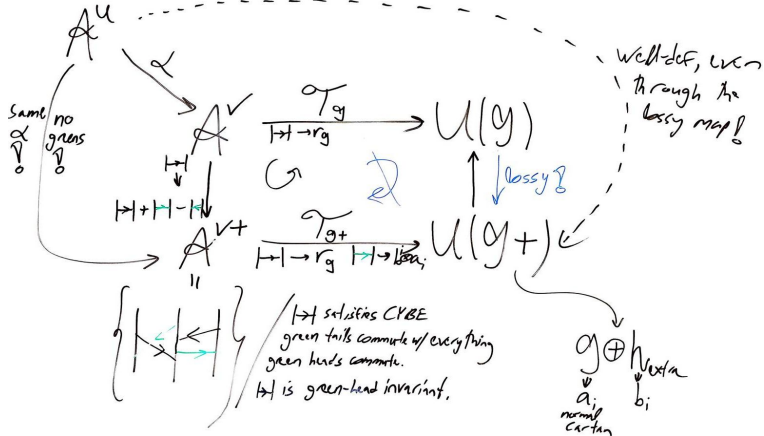 A^u
α
same α!
no greens!
A^v
T_g
|→| → r_g
U(g)
well-def, even
through the
lossy map!
|→|
|→| + |→| - |←|
lossy!
A^{v+}
T_{g+}
|→| → r_g |→| →
U(g+)
=
|→| satisfies CYBE
green tails commute w/ everything
green heads commute.
|→| is green-head invariant.
g ⊕ h_extra
a_i b_i
normal
cartan